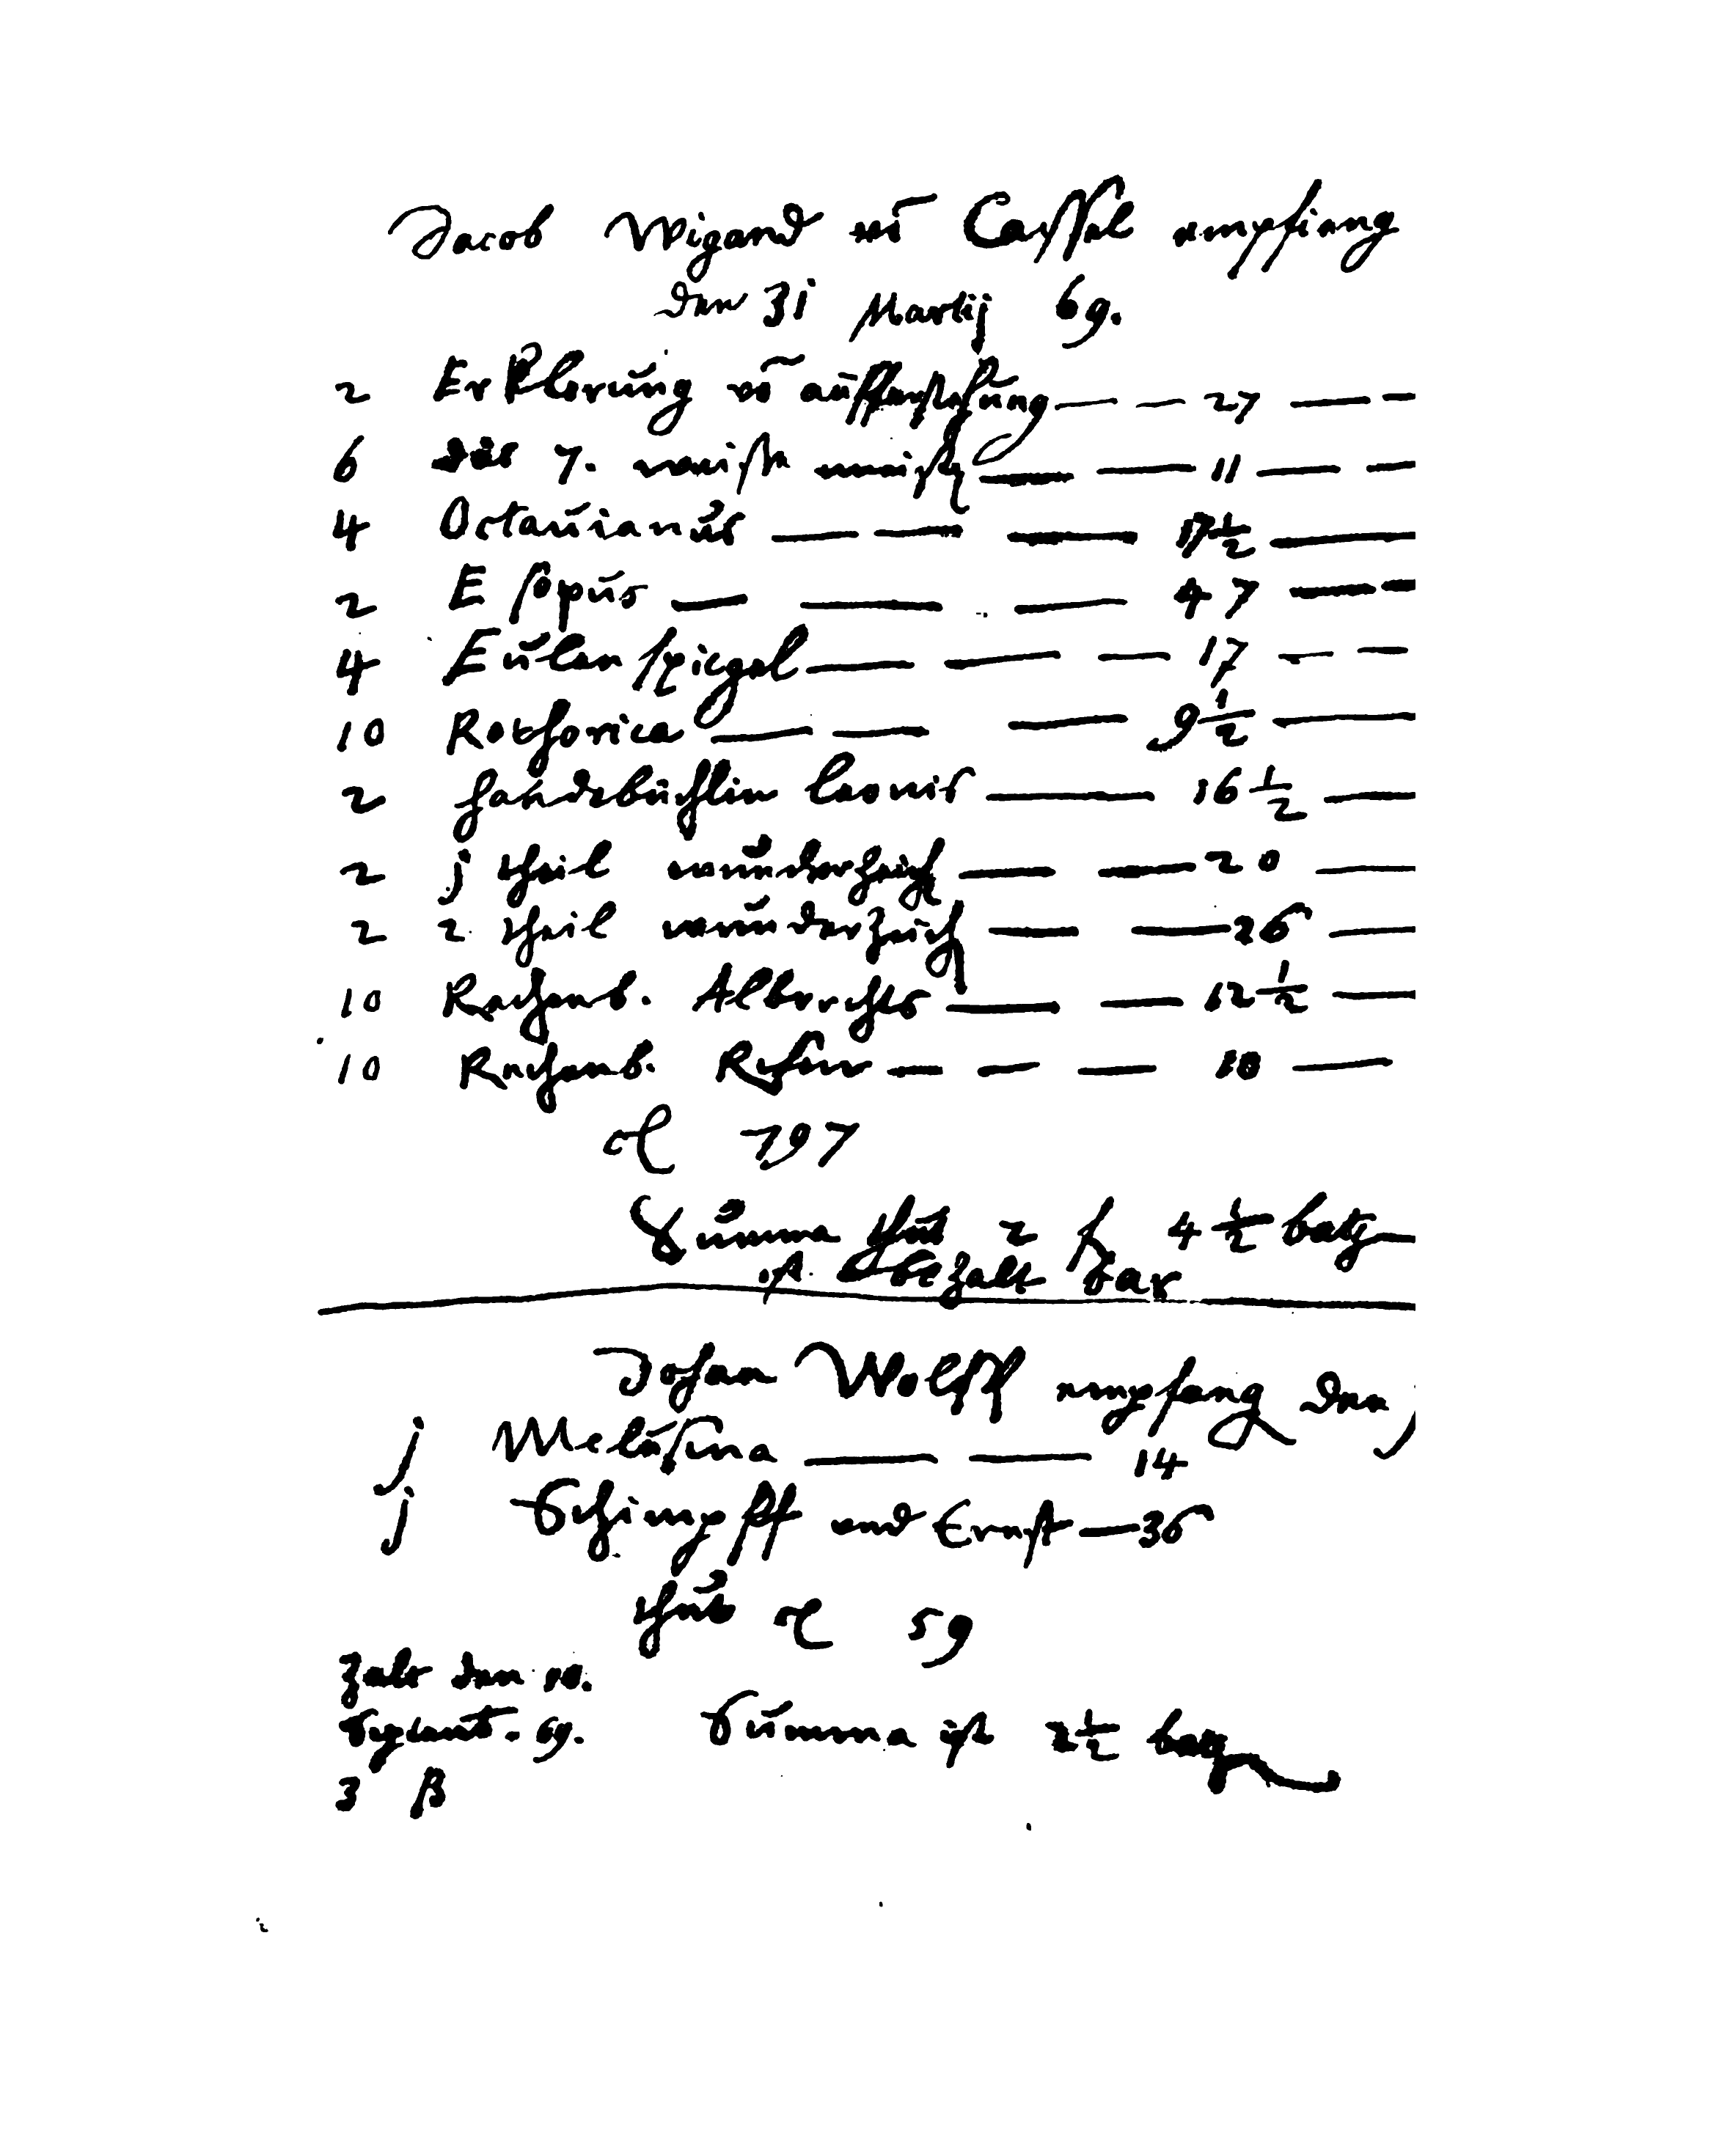 Jacob Wigand vō Cassel empfieng
den 31 Martij 69.
2 Erklerung vō aussprechung — — 27 — —
6 der 7. weisen meister — — 11 — —
4 Octauianus — — — 17½ —
2 Esopus — — — 47 — —
4 Eulenspiegel — — — 17 — —
10 Rethorica — — — 9½ —
2 handtbüchlin — 16½ —
2 j theil wunderzeich — — 20 —
2 2. theil wunderzeich — — 26 —
10 Rechenb. Albrechts — — 12½ —
10 Rechenb. — — — 10 —
797
Summa thut 2 fl 4½ batz
ist bezalt bar
Johan Wolff empfang den
j Melusina — — 14
j Schimpff und Ernst — 36
thut 59
zalt den 10.
Septemb. 69. Summa ist 2½ batz
3 ß